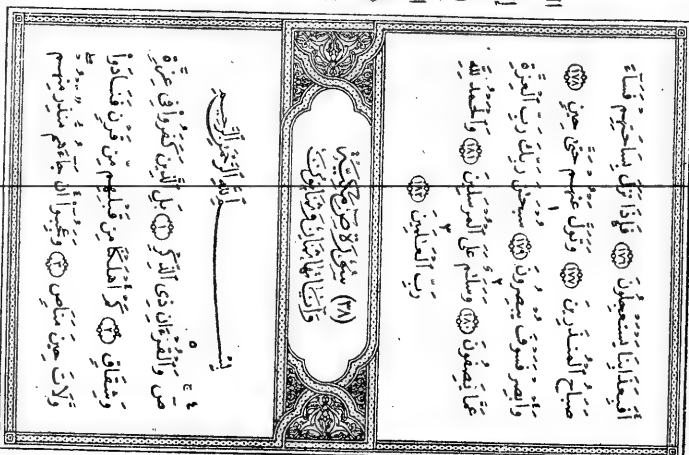 أَفَبِعَذَابِنَا يَسْتَعْجِلُونَ ﴿١٧٦﴾ فَإِذَا نَزَلَ بِسَاحَتِهِمْ فَسَآءَ
صَبَاحُ ٱلْمُنذَرِينَ ﴿١٧٧﴾ وَتَوَلَّ عَنْهُمْ حَتَّىٰ حِينٍ ﴿١٧٨﴾
وَأَبْصِرْ فَسَوْفَ يُبْصِرُونَ ﴿١٧٩﴾ سُبْحَٰنَ رَبِّكَ رَبِّ ٱلْعِزَّةِ
عَمَّا يَصِفُونَ ﴿١٨٠﴾ وَسَلَٰمٌ عَلَى ٱلْمُرْسَلِينَ ﴿١٨١﴾ وَٱلْحَمْدُ لِلَّهِ
رَبِّ ٱلْعَٰلَمِينَ ﴿١٨٢﴾
(٣٨) سُورَةُ صٓ مَكِّيَّةٌ
وَآيَاتُهَا ثَمَانٍ وَثَمَانُونَ
بِسْمِ ٱللَّهِ ٱلرَّحْمَٰنِ ٱلرَّحِيمِ
صٓ وَٱلْقُرْءَانِ ذِى ٱلذِّكْرِ ﴿١﴾ بَلِ ٱلَّذِينَ كَفَرُوا۟ فِى عِزَّةٍ
وَشِقَاقٍ ﴿٢﴾ كَمْ أَهْلَكْنَا مِن قَبْلِهِم مِّن قَرْنٍ فَنَادَوا۟
وَّلَاتَ حِينَ مَنَاصٍ ﴿٣﴾ وَعَجِبُوٓا۟ أَن جَآءَهُم مُّنذِرٌ مِّنْهُمْ